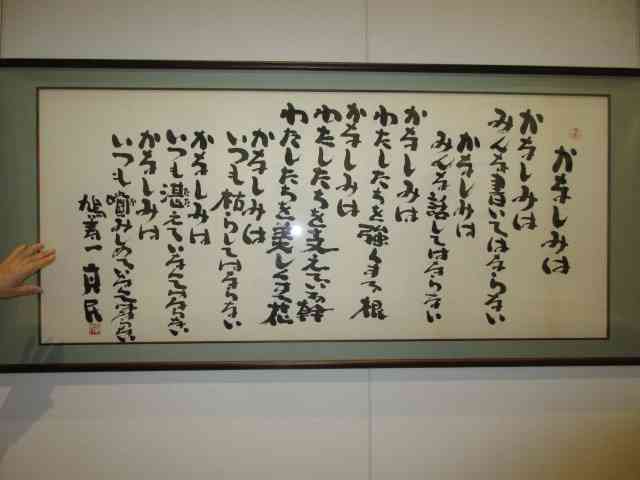 かなしみは
かなしみは
みんな書いてはならない
かなしみは
みんな話してはならない
かなしみは
わたしたちを強くする根
かなしみは
わたしたちを支えている幹
わたしたちを美しくする花
かなしみは
いつも枯らしてはならない
かなしみは
いつも湛えていなくてはならない
かなしみは
いつも噛みしめていなくてはならない
鳩寿一 真民